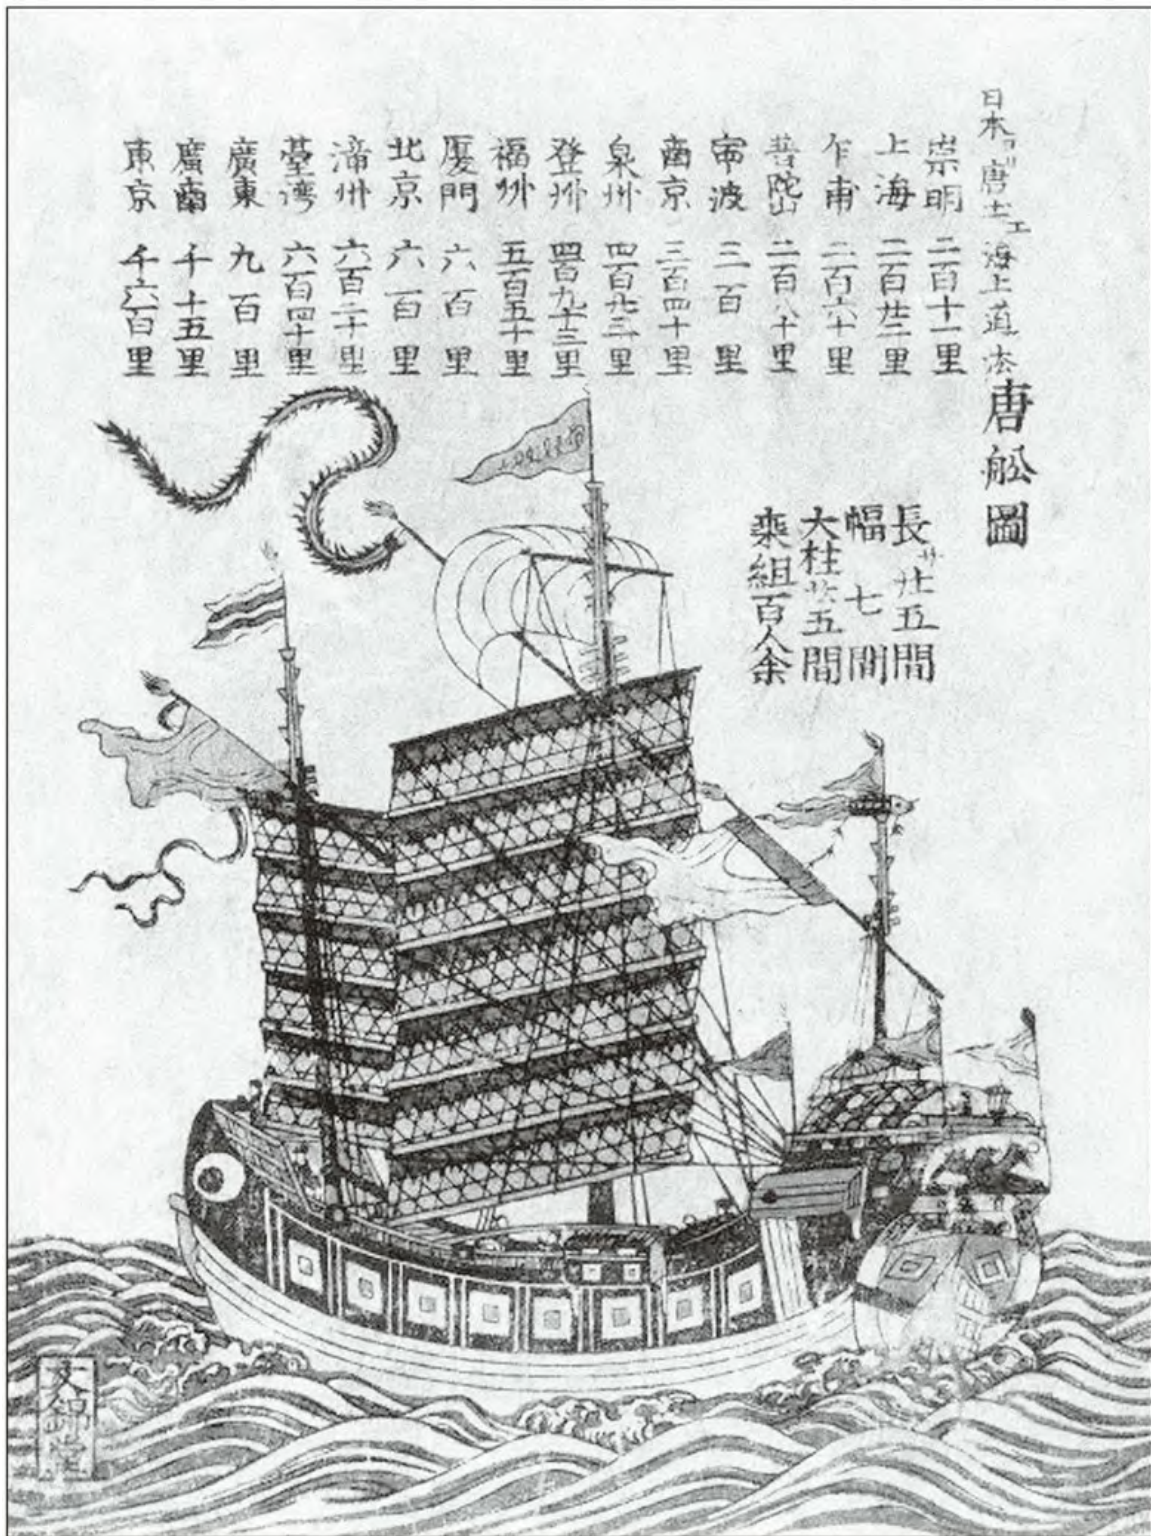 日本ヨリ唐土エ海上道法
崇明 二百十一里
上海 二百廿二里
乍甫 二百六十里
普陀山 二百八十里
寧波 三百里
南京 三百四十里
泉州 四百九三里
登州 四百九十三里
福州 五百五十里
厦門 六百里
北京 六百里
漳州 六百二十里
臺湾 六百四十里
廣東 九百里
廣南 千十五里
東京 千六百里
唐舩圖
長サ廿五間
幅七間
大柱廿五間
乗組百人余
文錦堂